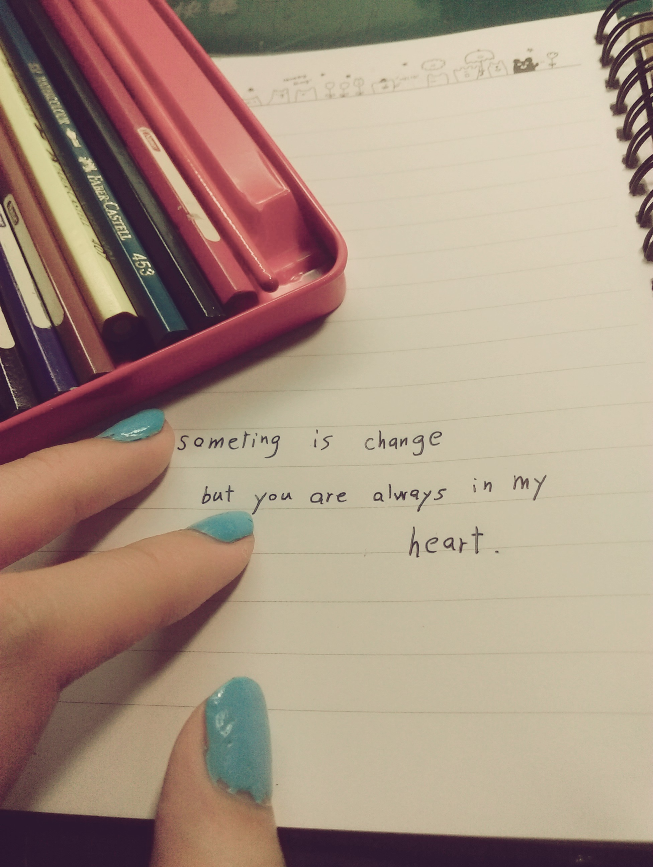 FABER-CASTELL 453
someting is change
but you are always in my
heart.